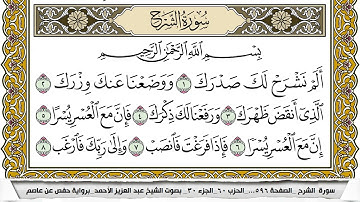 سُورَةُ الشَّرْحِ
بِسْمِ اللَّهِ الرَّحْمَٰنِ الرَّحِيمِ
أَلَمْ نَشْرَحْ لَكَ صَدْرَكَ ١ وَوَضَعْنَا عَنكَ وِزْرَكَ ٢
الَّذِي أَنقَضَ ظَهْرَكَ ٣ وَرَفَعْنَا لَكَ ذِكْرَكَ ٤ فَإِنَّ مَعَ الْعُسْرِ يُسْرًا ٥
إِنَّ مَعَ الْعُسْرِ يُسْرًا ٦ فَإِذَا فَرَغْتَ فَانصَبْ ٧ وَإِلَىٰ رَبِّكَ فَارْغَب ٨
سورة الشرح _الصفحة ٥٩٦_ الحزب ٦٠_الجزء ٣٠_ بصوت الشيخ عبد العزيز الأحمد_برواية حفص عن عاصم